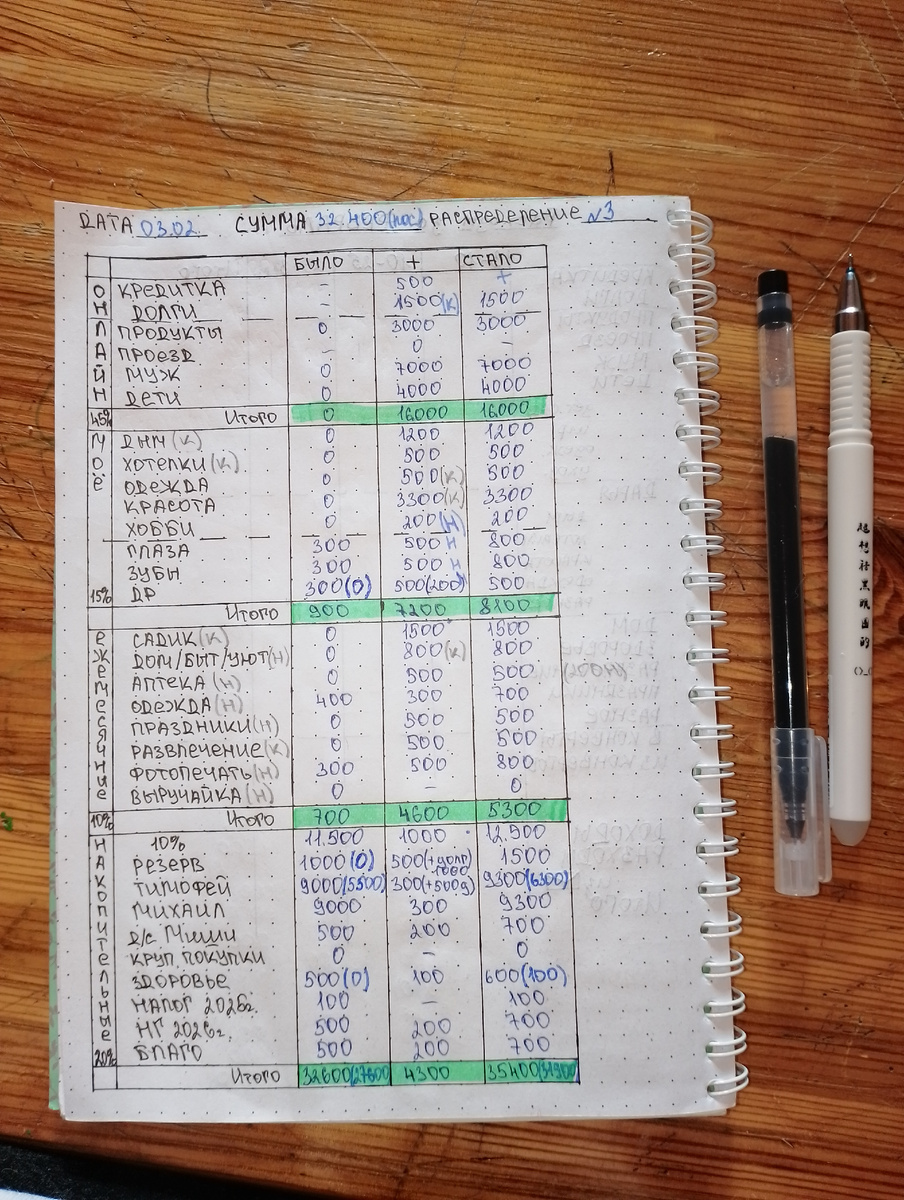 ДАТА 03.02. СУММА 32.400(нос) РАСПРЕДЕЛЕНИЕ №3
БЫЛО + СТАЛО
ОНЛАЙН
КРЕДИТКА - 500 +
ДОЛГИ - 1500(К) 1500
ПРОДУКТЫ 0 3000 3000
ПРОЕЗД - 0 -
МУЖ 0 7000 7000
ДЕТИ 0 4000 4000
45% Итого 0 16000 16000
МОЁ
ДНМ (К) 0 1200 1200
ХОТЕЛКИ (К) 0 500 500
ОДЕЖДА 0 500(К) 500
КРАСОТА 0 3300(К) 3300
ХОББИ 0 200(Н) 200
ГЛАЗА 300 500 Н 800
ЗУБЫ 300 500 Н 800
15% ДР 300(0) 500(200) 500
Итого 900 7200 8100
ЕЖЕМЕСЯЧНЫЕ
САДИК(К) 0 1500 1500
ДОМ/БЫТ/УЮТ(Н) 0 800(К) 800
АПТЕКА (Н) 0 500 500 (200Н)
ОДЕЖДА(Н) 400 300 700
ПРАЗДНИКИ(Н) 0 500 500
РАЗВЛЕЧЕНИЕ(К) 0 500 500
ФОТОПЕЧАТЬ(Н) 300 500 800
ВЫРУЧАЙКА(Н) 0 - 0
10% Итого 700 4600 5300
НАКОПИТЕЛЬНЫЕ
10% 11.500 1000 12.500
РЕЗЕРВ 1000(0) 500(+долг 1000 1500
ТИМОФЕЙ 9000(5500) 300(+500д) 9300(6300)
МИХАИЛ 9000 300 9300
Д/С Миши 500 200 700
КРУП. ПОКУПКИ 0 - 0
ЗДОРОВЬЕ 500(0) 100 600(100)
НАЛОГ 2026г. 100 - 100
НГ 2026г. 500 200 700
20% БЛАГО 500 200 700
Итого 32600(27600 4300 35400(31900